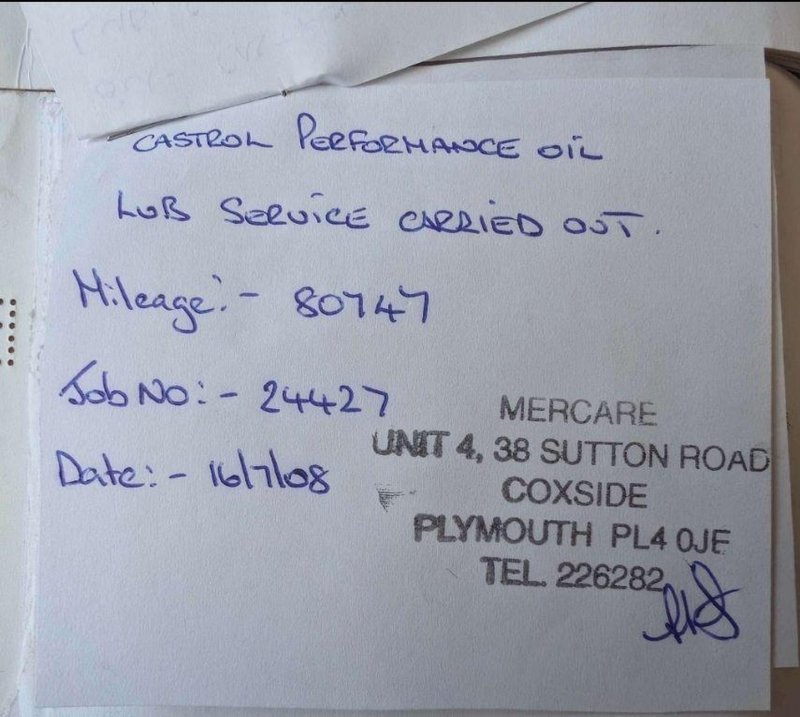 CASTROL PERFORMANCE OIL
LUB SERVICE CARRIED OUT.
Mileage:- 80747
Job No:- 24427
Date:- 16/7/08
MERCARE
UNIT 4, 38 SUTTON ROAD
COXSIDE
PLYMOUTH PL4 0JE
TEL. 226282